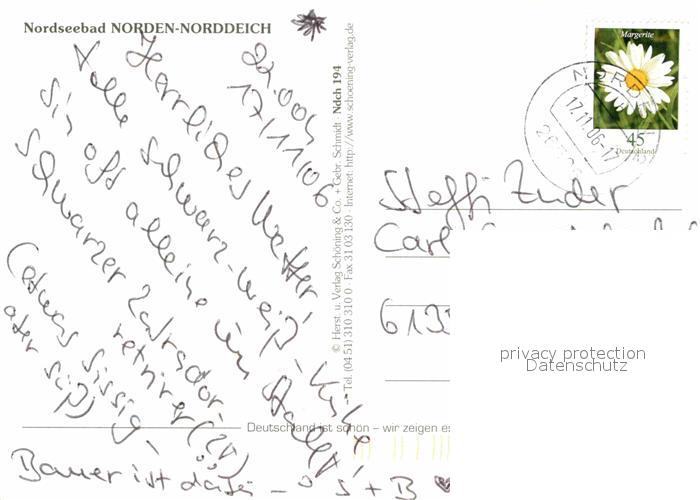 Nordseebad NORDEN-NORDDEICH
22.00h
17/11/06
Herrliches Wetter,
tolle schwarz-weiß-Kühe
sie oft alleine im Stall,
schwarzer Labrador-
retriver (2J)
(etwas sissig,
aber süß)
Bauer ist S + B
© Herst. u. Verlag Schöning & Co. + Gebr. Schmidt · Ndch 194
Tel. (04 51) 310 310 0 · Fax 31 03 130 · Internet: http://www.schoening-verlag.de
Deutschland ist schön – wir zeigen es
Margerite
45
Deutschland
17.11.06-17
Steffi
Carl
613
privacy protection
Datenschutz